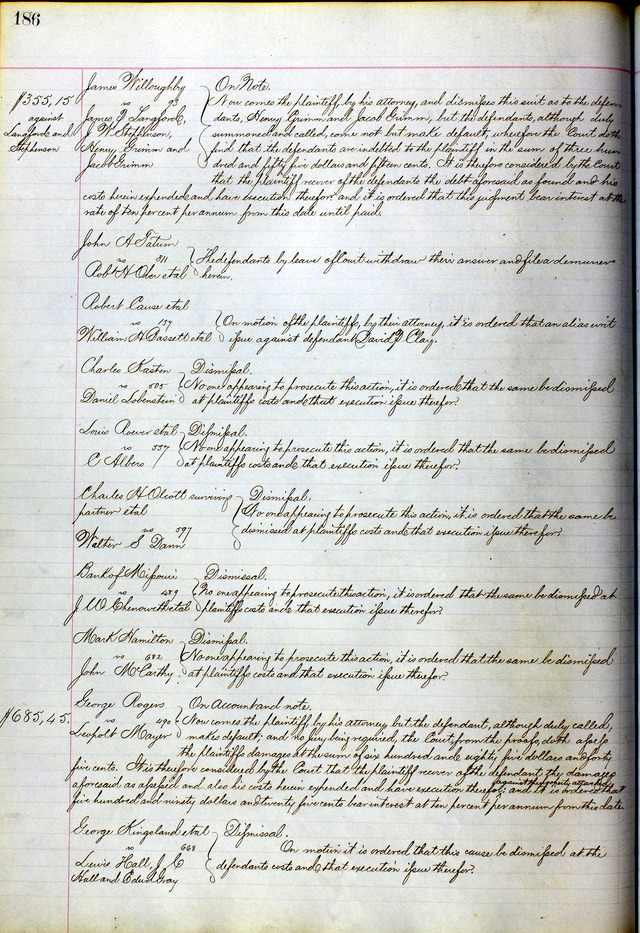 186
James Willoughby } On Note.
$355,15 vs 93 Now comes the plaintiff, by his attorney, and dismisses this suit as to the defen-
against James J Langford, dants, Henry Grimm and Jacob Grimm, but the defendants, although duly
Langford and J W Stephenson, summoned and called, come not but make default, wherefore the Court doth
Stephenson Henry Grimm and find that the defendants are indebted to the plaintiff in the sum of three hun
Jacob Grimm dred and fifty five dollars and fifteen cents. It is therefore considered by the Court
that the plaintiff recover of the defendants the debt aforesaid as found and his
costs herein expended, and have execution therefor. and it is ordered that this judgment bear interest at the
rate of ten percent per annum from this date until paid.
John A Tatum
vs 311 } The defendants by leave of Court withdraw their answer and file a demurrer
Robt H Ober et al herein.
Robert Cause et al
vs 137 } On motion of the plaintiffs, by their attorney, it is ordered that an alias writ
William H Bassett et al issue against defendant David P Clay.
Charles Kasten } Dismissal.
vs 505 No one appearing to prosecute this action, it is ordered that the same be dismissed
Daniel Lobenstein at plaintiffs costs and that execution issue therefor.
Louis Roever et al } Dismissal.
vs 557 No one appearing to prosecute this action, it is ordered that the same be dismissed
C Albers at plaintiffs costs and that execution issue therefor.
Charles H Olcott surviving } Dismissal.
partner et al No one appearing to prosecute this action, it is ordered that the same be
vs 597 dismissed at plaintiffs costs and that execution issue therefor.
Walter S Dann
Bank of Missouri } Dismissal.
vs 489 No one appearing to prosecute this action, it is ordered that the same be dismissed at
J W Chenoweth et al plaintiffs costs and that execution issue therefor.
Mark Hamilton } Dismissal.
vs 682 No one appearing to prosecute this action, it is ordered that the same be dismissed
John McCarthy at plaintiffs costs and that execution issue therefor.
George Rogers } On Account and note.
$685,45. vs 490 Now comes the plaintiff, by his attorney but the defendant, although duly called,
Leopolt Mayer makes default; and no jury being required, the Court, from the proofs, doth assess
the plaintiffs damages at the sum of six hundred and eighty five dollars and forty
five cents. It is therefore considered by the Court that the plaintiff recover of the defendant the damages
against the property attached
aforesaid as assessed and also his costs herein expended and have execution therefor; and it is ordered that
five hundred and ninety dollars and twenty five cents bear interest at ten percent per annum from this date
George Kingsland et al } Dismissal.
vs 668 On motion it is ordered that this cause be dismissed at the
Lewis Hall, J C defendants costs and that execution issue therefor.
Hall and Edwd Gray